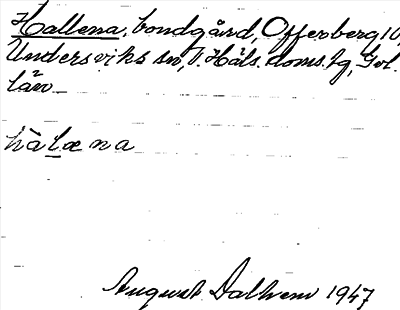 Hallena, bondgård, Offerberg 10,
Undersviks sn, V. Häls. doms. hg, Gvl.
län
hàLæna
August Dalhem 1947